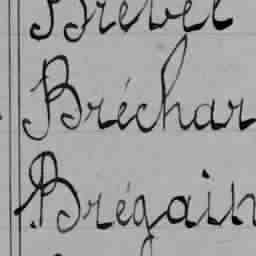 Brevet
Bréchar
Brégain